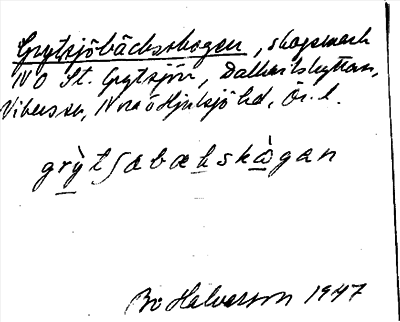 Grytsjöbäcksskogen, skogsmark
NO St. Grytsjön, Dalkarlshyttan,
Vikers sn, Nora o Hjulsjö hd, Ör. l.
grỳtʃabækskògan
Bo Halvarson 1947